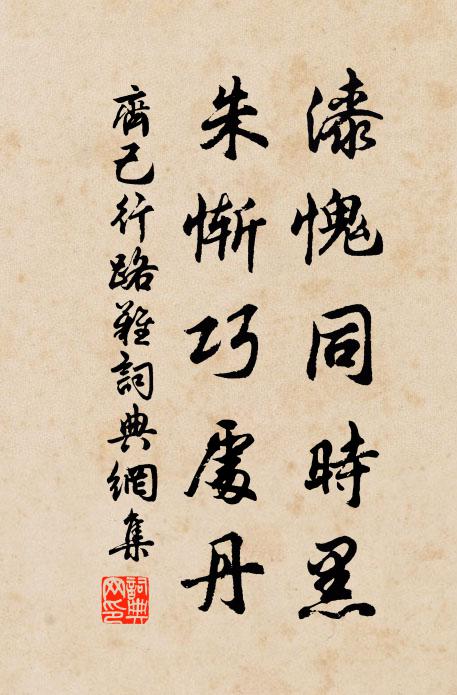 漆愧同時黑
朱慚巧處丹
齊己行路難詞典網集
詞典網印